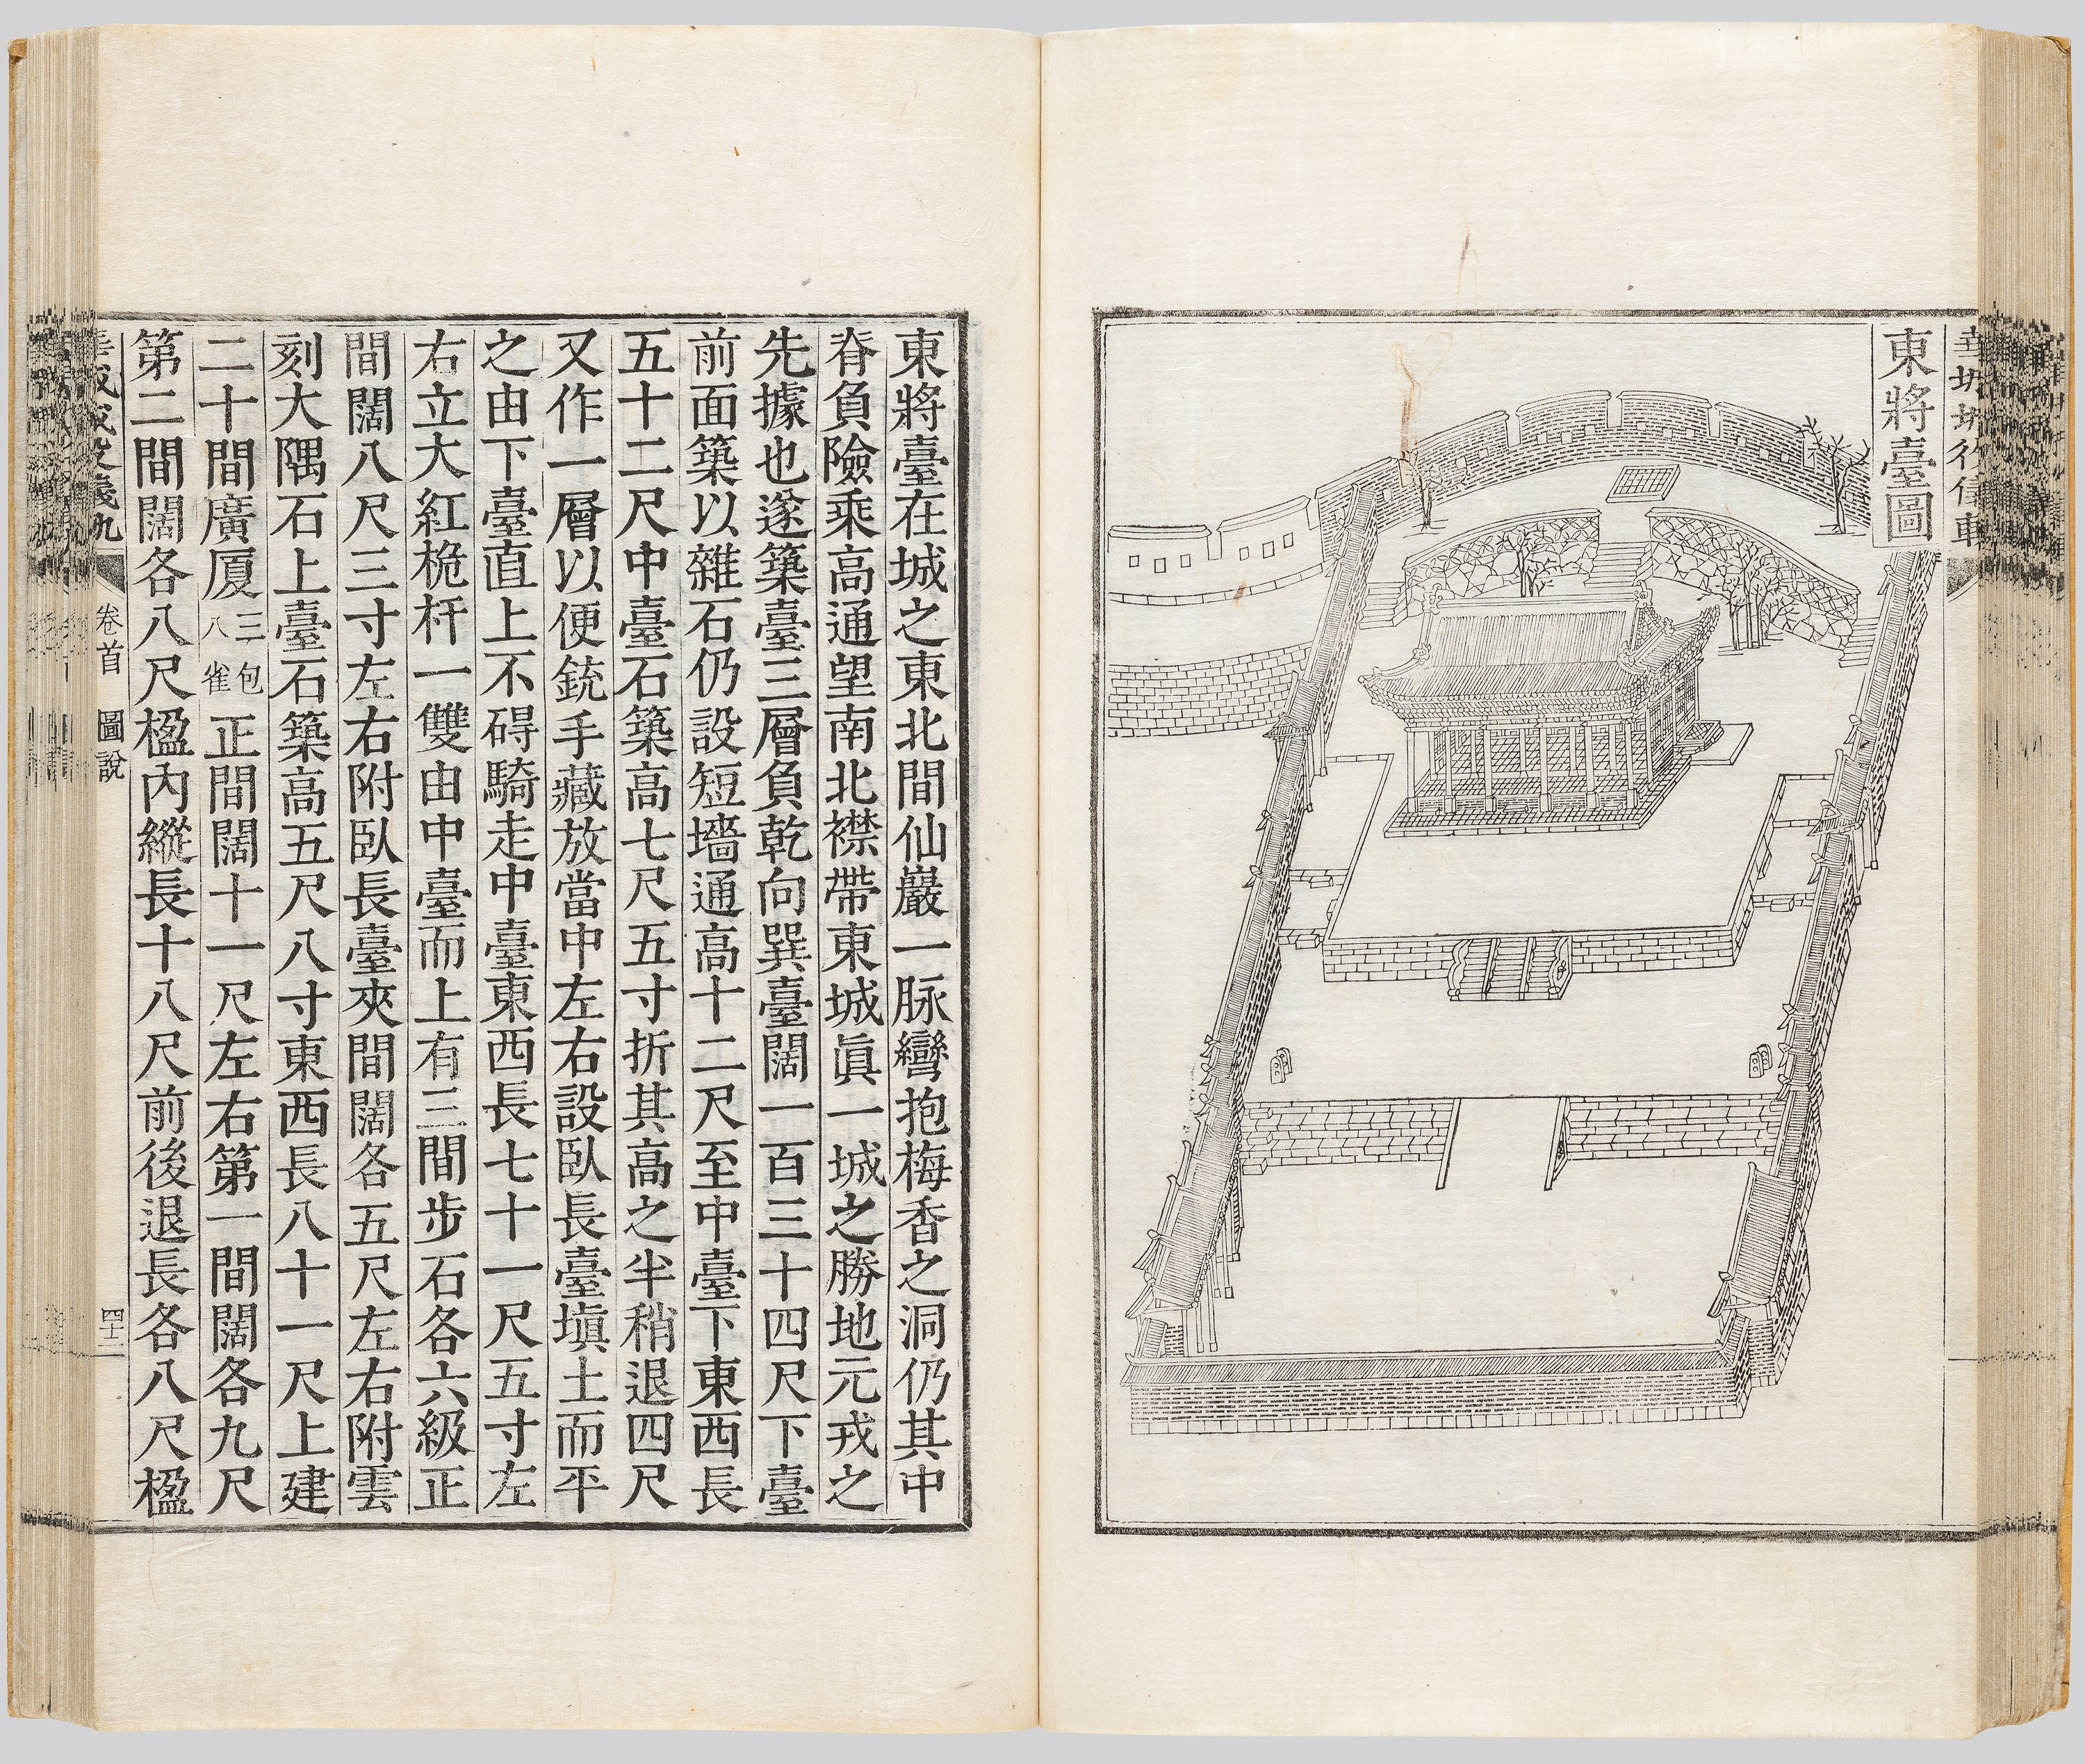 東將臺圖
東將臺在城之東北間仙巖一脉彎抱梅香之洞仍其中
脊負險乘高通望南北襟帶東城眞一城之勝地元戎之
先據也遂築臺三層負乾向巽臺闊一百三十四尺下臺
前面築以雜石仍設短墻通高十二尺至中臺下東西長
五十二尺中臺石築高七尺五寸折其高之半稍退四尺
又作一層以便銃手藏放當中左右設臥長臺塡土而平
之由下臺直上不碍騎走中臺東西長七十一尺五寸左
右立大紅桅杆一雙由中臺而上有三間步石各六級正
間闊八尺三寸左右附臥長臺夾間闊各五尺左右附雲
刻大隅石上臺石築高五尺八寸東西長八十一尺上建
二十間廣厦三包八雀正間闊十一尺左右第一間闊各九尺
第二間闊各八尺楹內縱長十八尺前後退長各八尺楹
卷首 圖說
四十二